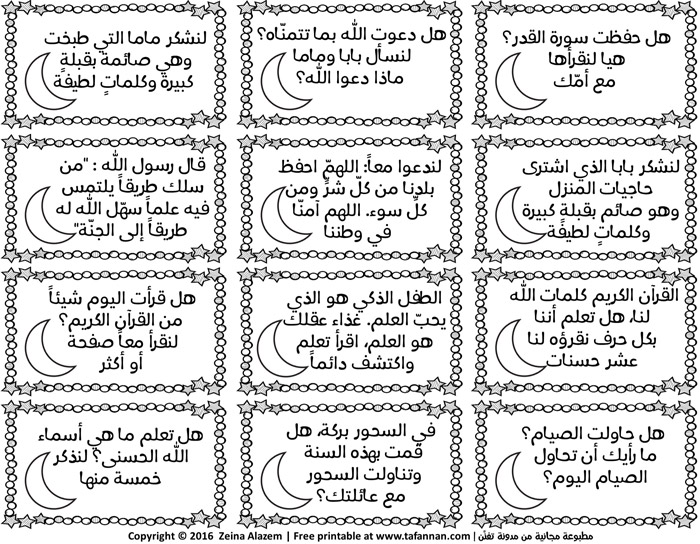 هل حفظت سورة القدر؟
هيا لنقرأها
مع أمّك
هل دعوت الله بما تتمنّاه؟
لنسأل بابا وماما
ماذا دعوا الله؟
لنشكر ماما التي طبخت
وهي صائمة بقبلةٍ
كبيرة وكلماتٍ لطيفة
لنشكر بابا الذي اشترى
حاجيات المنزل
وهو صائم بقبلةٍ كبيرة
وكلماتٍ لطيفة
لندعوا معاً: اللهمّ احفظ
بلدنا من كلّ شرٍّ ومن
كلّ سوء. اللهم آمنّا
في وطننا
قال رسول الله : "من
سلك طريقاً يلتمس
فيه علماً سهّل الله له
طريقاً إلى الجنّة"
القرآن الكريم كلمات الله
لنا، هل تعلم أننا
بكل حرف نقرؤه لنا
عشر حسنات
الطفل الذكي هو الذي
يحبّ العلم. غذاء عقلك
هو العلم، اقرأ تعلم
واكتشف دائماً
هل قرأت اليوم شيئاً
من القرآن الكريم؟
لنقرأ معاً صفحة
أو أكثر
هل حاولت الصيام؟
ما رأيك أن تحاول
الصيام اليوم؟
في السحور بركة، هل
قمت بهذه السنة
وتناولت السحور
مع عائلتك؟
هل تعلم ما هي أسماء
الله الحسنى؟ لنذكر
خمسة منها
Copyright © 2016 Zeina Alazem | Free printable at www.tafannan.com | مطبوعة مجانية من مدونة تفنّن